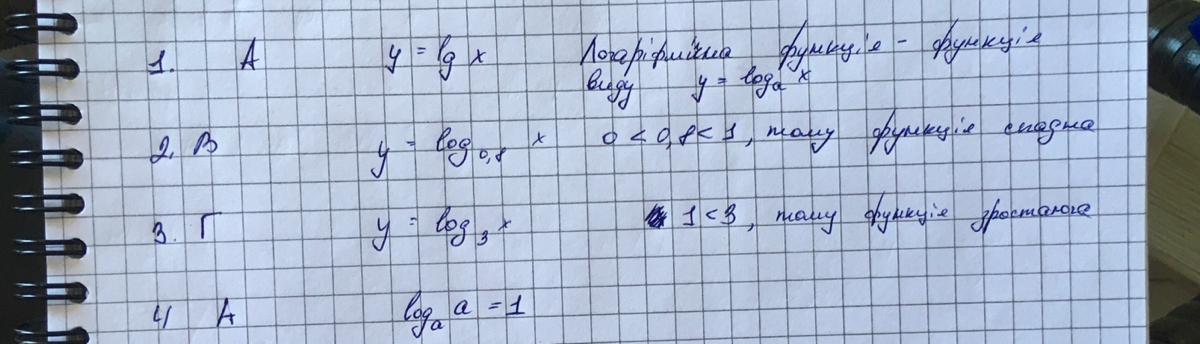 1. А y = lg x Логаріфмічна функція - функція
виду y = logₐ x
2. В y = log₀,₈ x 0 < 0,8 < 1, тому функція спадна
3. Г y = log₃ x 1 < 3, тому функція зростаюча
4 А logₐ a = 1